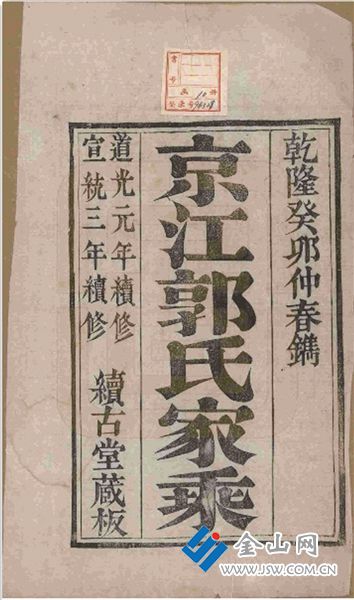 乾隆癸卯仲春鐫
京江郭氏家乘
道光元年續修
宣統三年續修
續古堂藏板
金山网
www.JSW.COM.CN